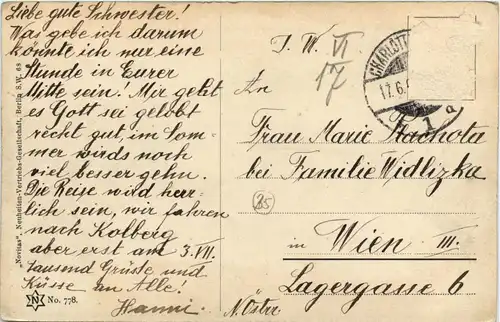 Liebe gute Schwester!
Was gebe ich darum
könnte ich nur eine
Stunde in Eurer
Mitte sein! Mir gehts
es Gott sei gelobt
recht gut im Som-
mer wirds noch
viel besser gehn.
Die Reise wird herr-
lich sein, wir fahren
nach Kolberg
aber erst am 3.VII.
tausend Grüsse und
Küsse an Alle!
Hanni.
„Novitas", Neuheiten-Vertriebs-Gesellschaft, Berlin S.W. 68
N No. 778.
VI
17
CHARLOTT
17.6.
1 a
An
Frau Marie Trachota
bei Familie Widlizka
25
in Wien III.
Lagergasse 6
N. Östr.